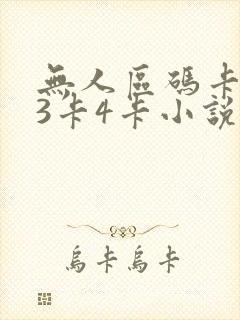 無人區碼卡
3卡4卡小說
烏卡烏卡